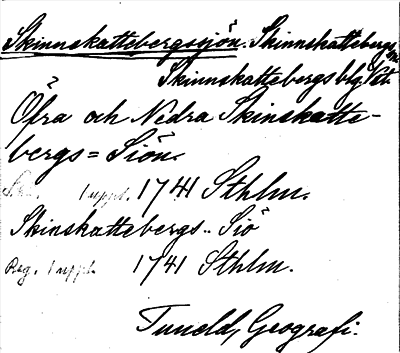 Skinnskattebergssjön. Skinnskattebergs sn
Skinnskattebergs blg Vstm.
Öfra och Nedra Skinskatte-
bergs=Siön.
1 uppl. 1741 Sthlm.
Skinskattebergs-Siö
Reg. 1 uppl. 1741 Sthlm.
Tuneld, Geografi.